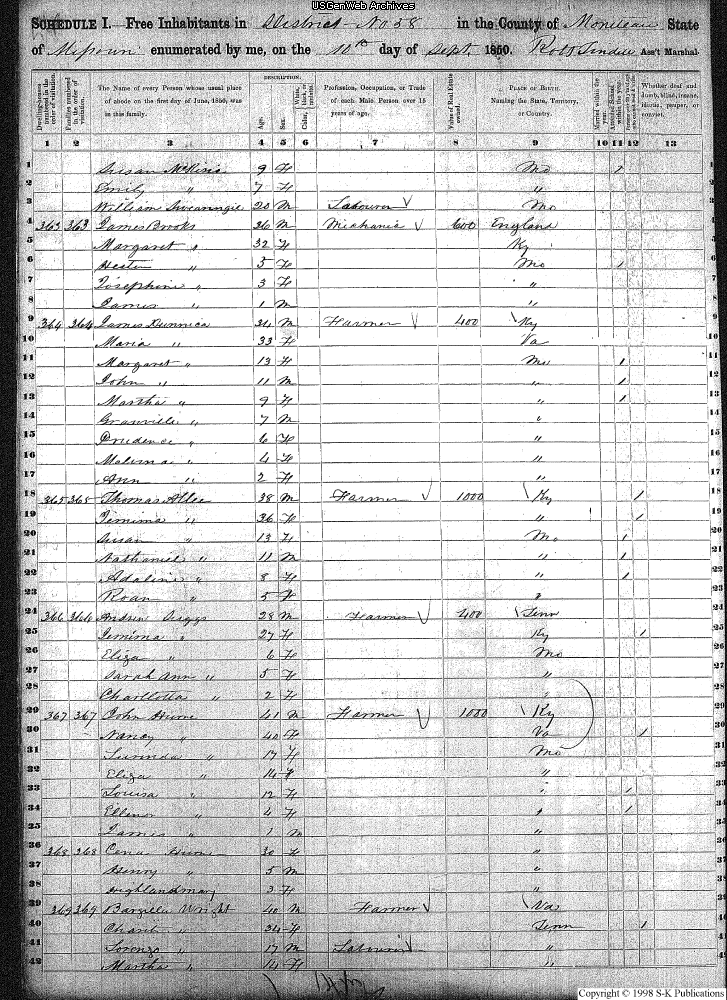 USGenWeb Archives
SCHEDULE I. Free Inhabitants in District No 58 in the County of Moniteau State
of Missouri enumerated by me, on the 10th day of Sept, 1850. Ass't Marshal.
Dwelling-houses numbered in the order of visitation.
Families numbered in the order of visitation.
The Name of every Person whose usual place of abode on the first day of June, 1850, was in this family.
DESCRIPTION.
Age.
Sex.
Color, White, black, or mulatto.
Profession, Occupation, or Trade of each Male Person over 15 years of age.
Value of Real Estate owned.
PLACE OF BIRTH. Naming the State, Territory, or Country.
Married within the year.
Attended School within the year.
Whether deaf and dumb, blind, insane, idiotic, pauper, or convict.
1 2 3 4 5 6 7 8 9 10 11 12 13
1 Susan 9 F Mo 1
2 Emily " 7 F "
3 William 20 M Labourer Mo
4 363 363 James Brooks 36 M Mechanic 600 England
5 Margaret " 32 F Ky
6 Hester " 5 F Mo 1
7 Josephine " 3 F "
8 James " 1 M "
9 364 364 James Dunnica 34 M Farmer 400 Ky
10 Maria " 33 F Va
11 Margaret " 13 F Mo 1
12 John " 11 M " 1
13 Martha " 9 F " 1
14 Granville " 7 M "
15 Prudence " 6 F "
16 Melvina " 4 F "
17 Ann " 2 F "
18 365 365 Thomas Allee 38 M Farmer 1000 Ky 1
19 Jemima " 36 F " 1
20 Susan " 13 F Mo 1
21 Nathaniel " 11 M " 1
22 Adaline " 8 F " 1
23 Roan " 5 F "
24 366 366 Andrew 28 M Farmer 400 Tenn
25 Jemima " 27 F Ky 1
26 Eliza " 6 F Mo
27 Sarah Ann " 5 F "
28 Charllotta " 2 F "
29 367 367 John Hume 41 M Farmer 1000 Ky
30 Nancy " 40 F Va 1
31 Surinda " 17 F Mo
32 Eliza " 14 F "
33 Louisa " 12 F " 1
34 Ellenor " 4 F " 1
35 James " 1 M "
36 368 368 Hume 30 F "
37 Henry " 5 M "
38 3 F "
39 369 369 Wright 40 M Farmer Va
40 " 34 F Tenn 1
41 Lorenzo " 17 M Labourer "
42 Martha " 14 F "
Copyright © 1998 S-K Publications